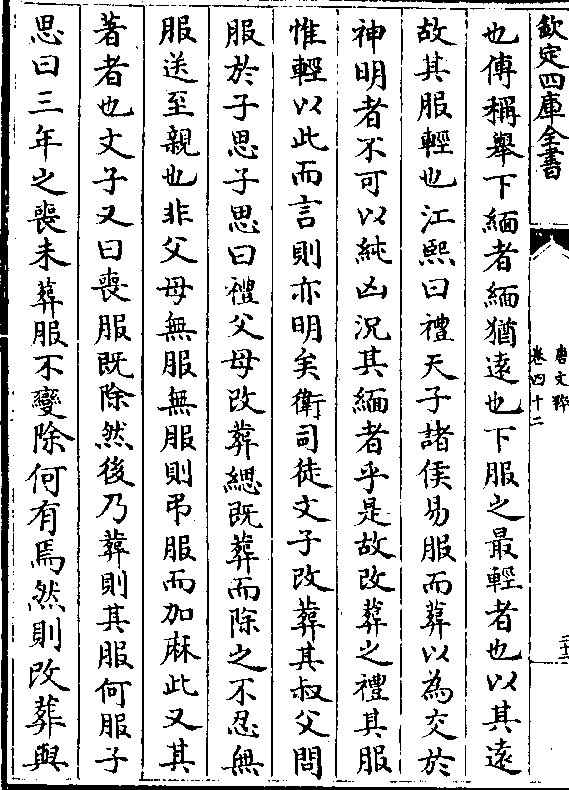 欽定四庫全書
唐文粹
卷四十二
也傳稱舉下緬者緬猶遠也下服之最輕者也以其遠
故其服輕也江熙曰禮天子諸侯易服而葬以為交於
神明者不可以純凶況其緬者乎是故改葬之禮其服
惟輕以此而言則亦明矣衛司徒文子改葬其叔父問
服於子思子思曰禮父母改葬緦既葬而除之不忍無
服送至親也非父母無服無服則弔服而加麻此又其
著者也文子又曰喪服既除然後乃葬則其服何服子
思曰三年之喪未葬服不變除何有焉然則改葬與